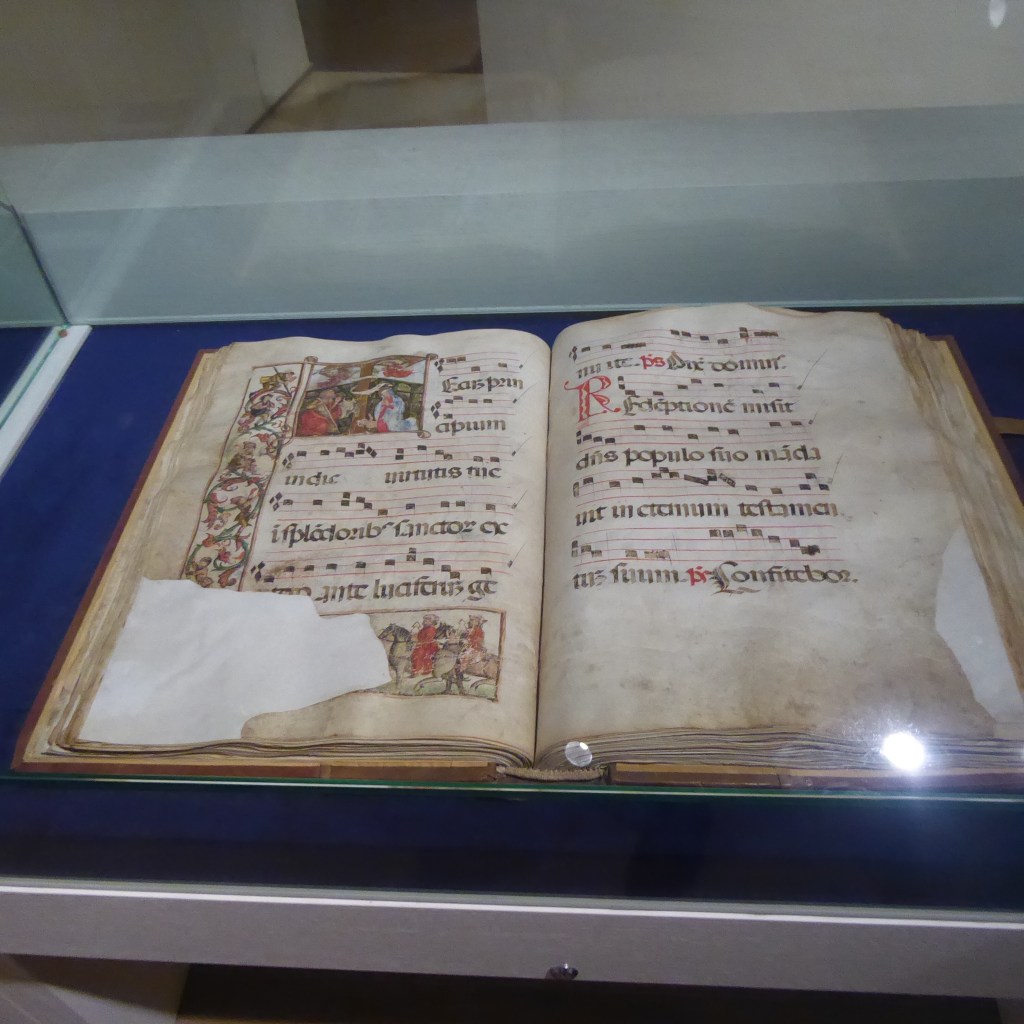 Tecum prin
cipium
in die uirtutis tue
i splēdoribꝰ sanctor ex
ante luciferuȝ ge
nui te. p̄s Dix̄ dominꝰ.
Redēptionē misit
dn̄s populo suo māda
uit in eternum testamen
tuȝ suum p̄s Confitebor.